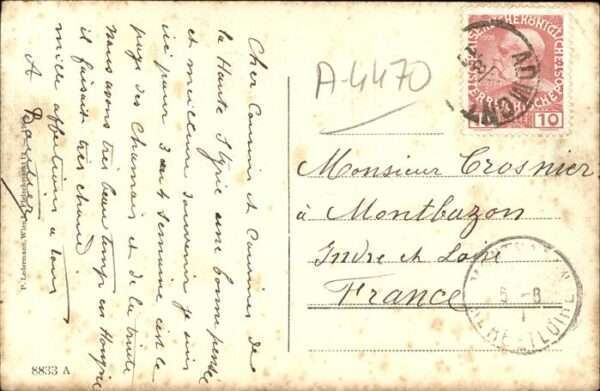 Cher Cousin et Cousines de
la Haute Styrie une bonne pensée
et meilleur souvenir je suis
ici pour 3 ou 4 semaine c'est le
pays des Chamois et de la truite
Nous avons très beau temps en Hongrie
il faisait très chaud.
mille affections a tous
A
A-4470
KAISERLICHE KÖNIGLICHE
POST
10
ADMONT
Monsieur Crosnier
à Montbazon
Indre et Loire
France
8833 A